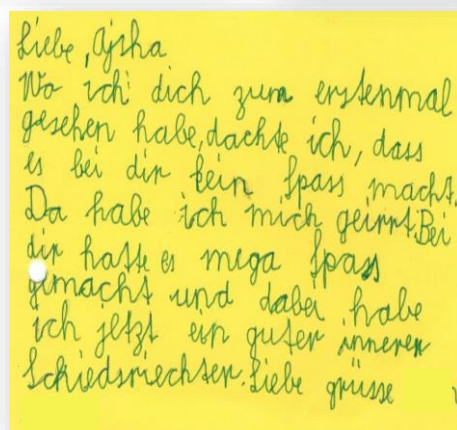 Liebe, Ajsha
Wo ich dich zum erstenmal
gesehen habe, dachte ich, dass
es bei dir kein spass macht.
Da habe ich mich geirrt. Bei
dir hatte es mega spass
gemacht und dabei habe
ich jetzt ein guter innerer
Schiedsriechter. Liebe grüsse